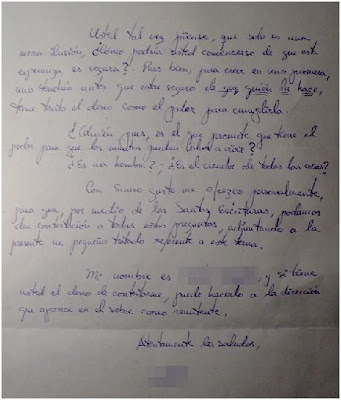 Usted tal vez piense, que solo es una
mera ilusión, ¿Cómo podría usted convencerse de que esta
esperanza es segura? Pues bien, para creer en una promesa,
uno tendría antes que estar seguro de que quién la hace,
tiene tanto el deseo como el poder para cumplirla.
¿Quién pues, es el que promete que tiene el
poder para que los muertos puedan volver a vivir?
¿Es un hombre?; ¿Es el creador de todas las cosas?
Con sumo gusto me ofrezco personalmente,
para que, por medio de las Santas Escrituras, podamos
dar contestación a todas estas preguntas, adjuntando a la
presente un pequeño tratado referente a este tema.
Mi nombre es , y si tiene
usted el deseo de contestarme, puede hacerlo a la dirección
que aparece en el sobre como remitente.
Atentamente les saludos,